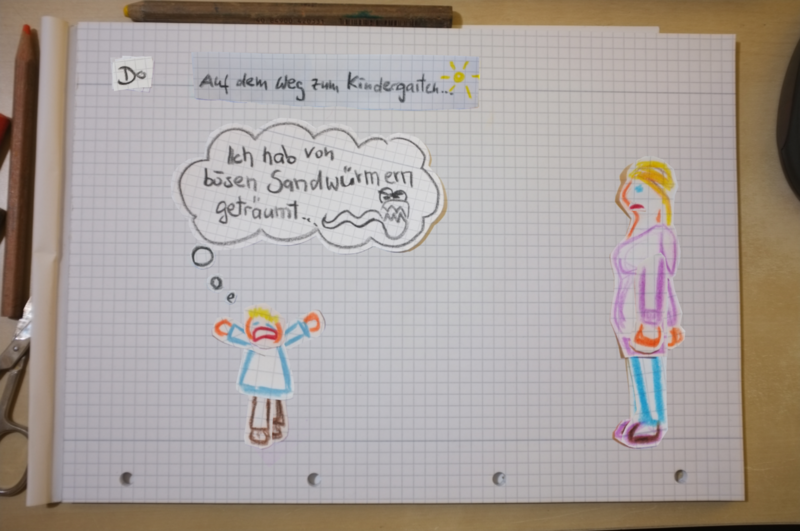 Do
Auf dem Weg zum Kindergarten...
Ich hab von
bösen Sandwürmern
geträumt...